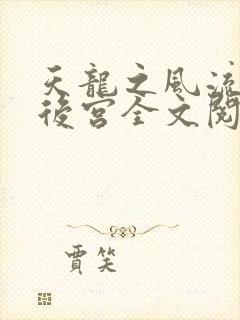 天龍之風流
後宮全文閱
賈笑